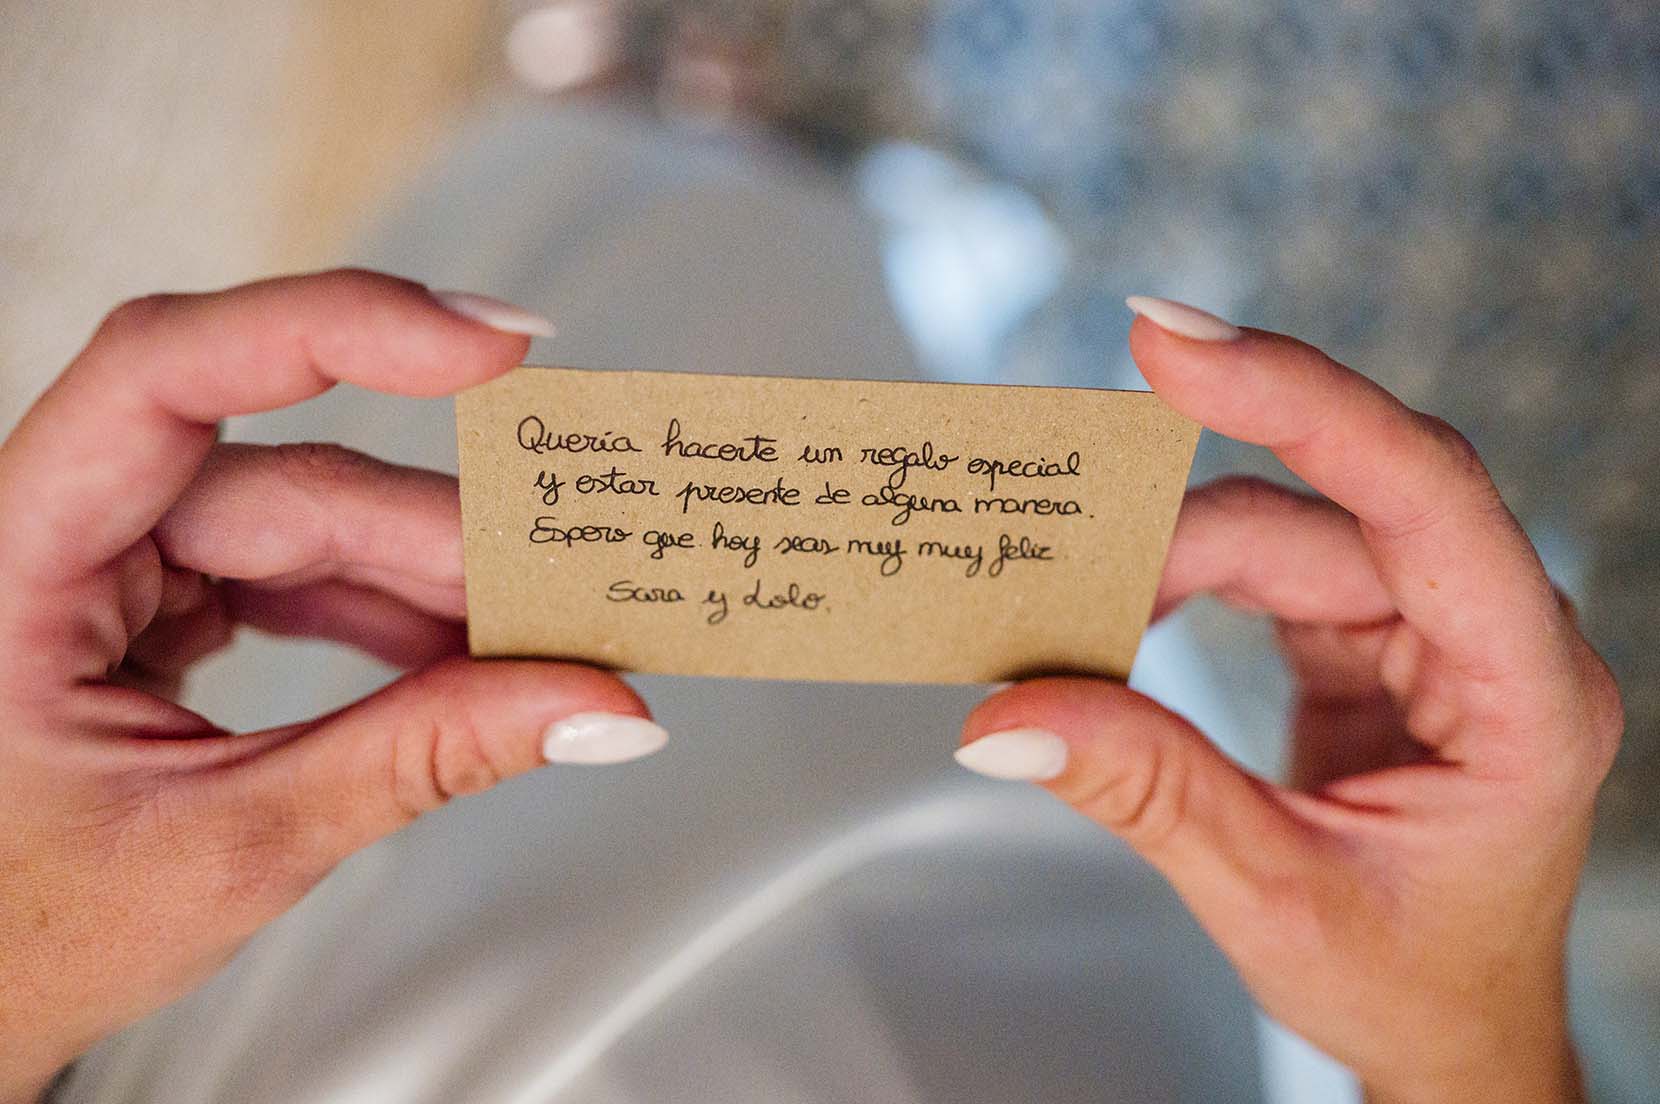 Quería hacerte un regalo especial
y estar presente de alguna manera.
Espero que hoy seas muy muy feliz
Sara y Lolo.